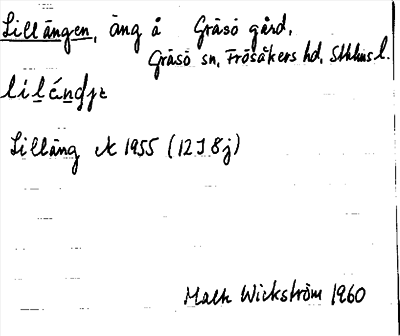 Lillängen, äng å Gräsö gård,
Gräsö sn, Frösåkers hd, Sthlms l.
Lilläng Ek 1955 (12I 8j)
Wickström 1960